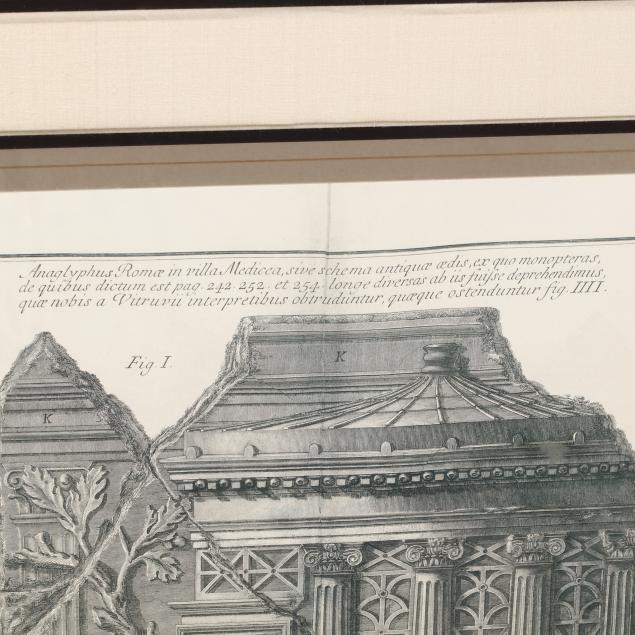 Anaglyphus Romæ in villa Medicea, sive schema antiquæ ædis, ex quo monopteras,
de quibus dictum est pag. 242. 252. et 254. longe diversas ab iis fuisse deprehendimus,
quæ nobis a Vitruvii interpretibus obtruduntur, quæque ostenduntur fig. IIII.
Fig. I.
K
K